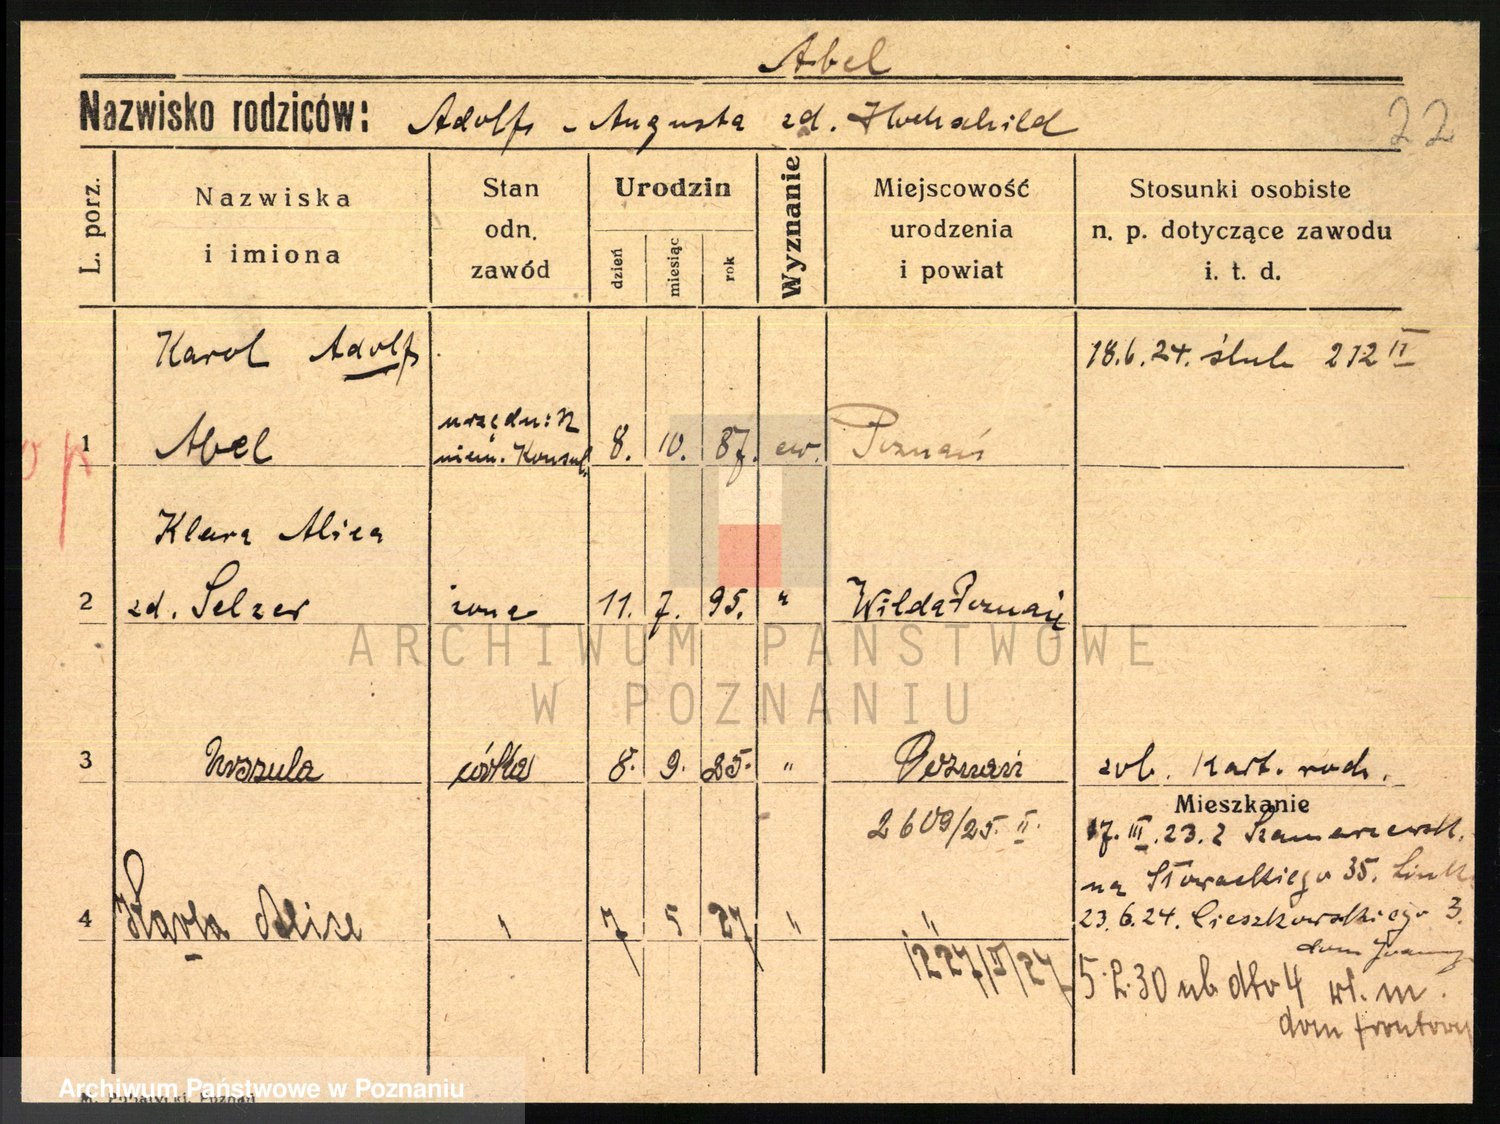 Abel
Nazwisko rodziców: Adolf - Augusta zd. Hochschild
22
L. porz.
Nazwiska
i imiona
Stan
odn.
zawód
Urodzin
dzień
miesiąc
rok
Wyznanie
Miejscowość
urodzenia
i powiat
Stosunki osobiste
n. p. dotyczące zawodu
i. t. d.
Karol Adolf
18.6.24. ślub 212 II
1 Abel urzędnik niem. Konsul. 8. 10. 87. ew. Poznań
Klara Alica
2 zd. Selzer żona 11. 7. 95. " Wilda Poznań
ARCHIWUM PAŃSTWOWE
W POZNANIU
3 Urszula córka 8. 9. 25. " Poznań zob. Kart. rodz.
Mieszkanie
2609/25. II.
17. III. 23. z
na Słowackiego 35.
4 Karla Alise " 7 5 27 " "
23.6.24. Cieszkowskiego 3.
5.2.30 ub dto 4 wł. m.
dom frontowy
Archiwum Państwowe w Poznaniu